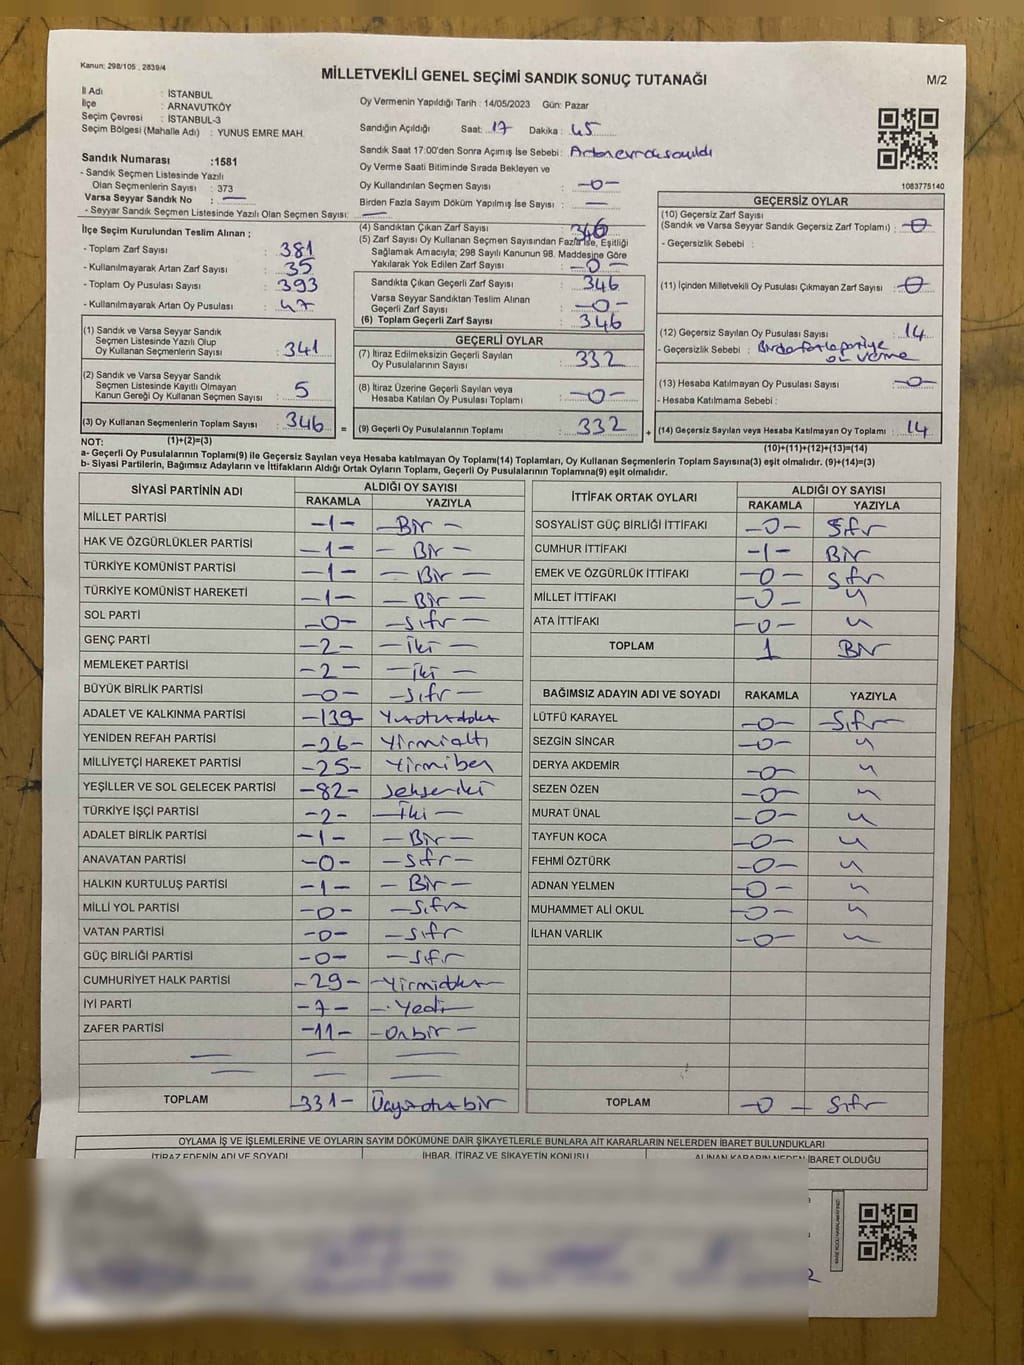 Kanun: 298/105 , 2839/4
MİLLETVEKİLİ GENEL SEÇİMİ SANDIK SONUÇ TUTANAĞI
M/2
İl Adı : İSTANBUL
İlçe : ARNAVUTKÖY
Seçim Çevresi : İSTANBUL-3
Seçim Bölgesi (Mahalle Adı) : YUNUS EMRE MAH.
Sandık Numarası :1581
- Sandık Seçmen Listesinde Yazılı
Olan Seçmenlerin Sayısı : 373
Varsa Seyyar Sandık No : —
- Seyyar Sandık Seçmen Listesinde Yazılı Olan Seçmen Sayısı: —
Oy Vermenin Yapıldığı Tarih : 14/05/2023 Gün: Pazar
Sandığın Açıldığı Saat: 17 Dakika : 45
Sandık Saat 17:00'den Sonra Açımış İse Sebebi : Artan evrak sayıldı
Oy Verme Saati Bitiminde Sırada Bekleyen ve
Oy Kullandırılan Seçmen Sayısı : -0-
Birden Fazla Sayım Döküm Yapılmış İse Sayısı : —
1083775140
İlçe Seçim Kurulundan Teslim Alınan ;
- Toplam Zarf Sayısı : 381
- Kullanılmayarak Artan Zarf Sayısı : 35
- Toplam Oy Pusulası Sayısı : 393
- Kullanılmayarak Artan Oy Pusulası : 47
(1) Sandık ve Varsa Seyyar Sandık
Seçmen Listesinde Yazılı Olup
Oy Kullanan Seçmenlerin Sayısı : 341
(2) Sandık ve Varsa Seyyar Sandık
Seçmen Listesinde Kayıtlı Olmayan
Kanun Gereği Oy Kullanan Seçmen Sayısı : 5
(3) Oy Kullanan Seçmenlerin Toplam Sayısı : 346 =
(4) Sandıktan Çıkan Zarf Sayısı : 346
(5) Zarf Sayısı Oy Kullanan Seçmen Sayısından Fazla İse, Eşitliği
Sağlamak Amacıyla; 298 Sayılı Kanunun 98. Maddesine Göre
Yakılarak Yok Edilen Zarf Sayısı : -0-
Sandıkta Çıkan Geçerli Zarf Sayısı : 346
Varsa Seyyar Sandıktan Teslim Alınan
Geçerli Zarf Sayısı : -0-
(6) Toplam Geçerli Zarf Sayısı : 346
GEÇERLİ OYLAR
(7) İtiraz Edilmeksizin Geçerli Sayılan
Oy Pusulalarının Sayısı : 332
(8) İtiraz Üzerine Geçerli Sayılan veya
Hesaba Katılan Oy Pusulası Toplamı : -0-
(9) Geçerli Oy Pusulalarının Toplamı : 332 +
GEÇERSİZ OYLAR
(10) Geçersiz Zarf Sayısı
(Sandık ve Varsa Seyyar Sandık Geçersiz Zarf Toplamı) : -0-
- Geçersizlik Sebebi :
(11) İçinden Milletvekili Oy Pusulası Çıkmayan Zarf Sayısı : -0-
(12) Geçersiz Sayılan Oy Pusulası Sayısı : 14
- Geçersizlik Sebebi : Birden fazla partiye
oy verme
(13) Hesaba Katılmayan Oy Pusulası Sayısı : -0-
- Hesaba Katılmama Sebebi :
(14) Geçersiz Sayılan veya Hesaba Katılmayan Oy Toplamı : 14
NOT: (1)+(2)=(3) (10)+(11)+(12)+(13)=(14)
a- Geçerli Oy Pusulalarının Toplamı(9) ile Geçersiz Sayılan veya Hesaba katılmayan Oy Toplamı(14) Toplamları, Oy Kullanan Seçmenlerin Toplam Sayısına(3) eşit olmalıdır. (9)+(14)=(3)
b- Siyasi Partilerin, Bağımsız Adayların ve İttifakların Aldığı Ortak Oyların Toplamı, Geçerli Oy Pusulalarının Toplamına(9) eşit olmalıdır.
SİYASİ PARTİNİN ADI ALDIĞI OY SAYISI
RAKAMLA YAZIYLA
MİLLET PARTİSİ -1- -Bir-
HAK VE ÖZGÜRLÜKLER PARTİSİ -1- -Bir-
TÜRKİYE KOMÜNİST PARTİSİ -1- -Bir-
TÜRKİYE KOMÜNİST HAREKETİ -1- -Bir-
SOL PARTİ -0- -Sıfır-
GENÇ PARTİ -2- -İki-
MEMLEKET PARTİSİ -2- -İki-
BÜYÜK BİRLİK PARTİSİ -0- -Sıfır-
ADALET VE KALKINMA PARTİSİ -139- Yüzotuzdokuz
YENİDEN REFAH PARTİSİ -26- Yirmialtı
MİLLİYETÇİ HAREKET PARTİSİ -25- Yirmibeş
YEŞİLLER VE SOL GELECEK PARTİSİ -82- Sekseniki
TÜRKİYE İŞÇİ PARTİSİ -2- -İki-
ADALET BİRLİK PARTİSİ -1- -Bir-
ANAVATAN PARTİSİ -0- -Sıfır-
HALKIN KURTULUŞ PARTİSİ -1- -Bir-
MİLLİ YOL PARTİSİ -0- -Sıfır
VATAN PARTİSİ -0- -Sıfır
GÜÇ BİRLİĞİ PARTİSİ -0- -Sıfır
CUMHURİYET HALK PARTİSİ -29- -Yirmidokuz
İYİ PARTİ -7- -Yedi-
ZAFER PARTİSİ -11- -Onbir-
TOPLAM -331- Üçyüzotuzbir
İTTİFAK ORTAK OYLARI ALDIĞI OY SAYISI
RAKAMLA YAZIYLA
SOSYALİST GÜÇ BİRLİĞİ İTTİFAKI -0- Sıfır
CUMHUR İTTİFAKI -1- Bir
EMEK VE ÖZGÜRLÜK İTTİFAKI -0- Sıfır
MİLLET İTTİFAKI -0- "
ATA İTTİFAKI -0- "
TOPLAM 1 Bir
BAĞIMSIZ ADAYIN ADI VE SOYADI RAKAMLA YAZIYLA
LÜTFÜ KARAYEL -0- -Sıfır
SEZGİN SİNCAR -0- "
DERYA AKDEMİR -0- "
SEZEN ÖZEN -0- "
MURAT ÜNAL -0- "
TAYFUN KOCA -0- "
FEHMİ ÖZTÜRK -0- "
ADNAN YELMEN -0- "
MUHAMMET ALİ OKUL -0- "
İLHAN VARLIK -0- "
TOPLAM -0- Sıfır
OYLAMA İŞ VE İŞLEMLERİNE VE OYLARIN SAYIM DÖKÜMÜNE DAİR ŞİKAYETLERLE BUNLARA AİT KARARLARIN NELERDEN İBARET BULUNDUKLARI
İTİRAZ EDENİN ADI VE SOYADI İHBAR, İTİRAZ VE ŞİKAYETİN KONUSU ALINAN KARARIN NEDEN İBARET OLDUĞU